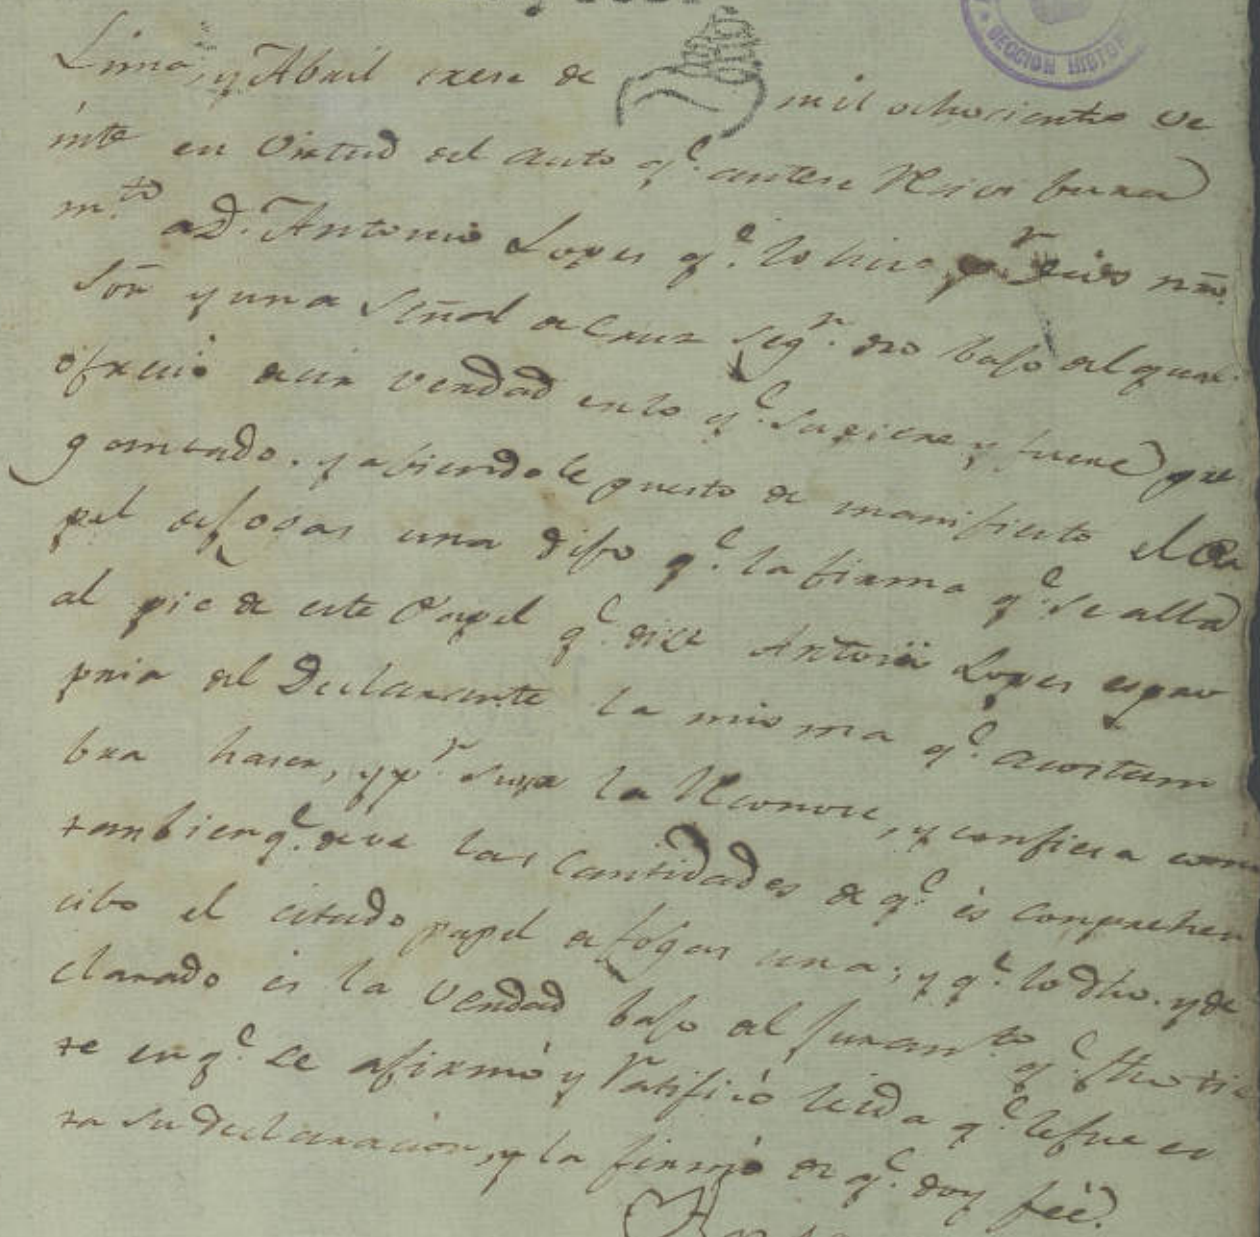 SECCION HISTOR
Lima, y Abril trese de mil ochocientos ve
inte en virtud del auto q.e antese Resivi Jura
m.to a D. Antonio Lopes q.e lo hiso p.r Dios nro.
Sor y una Señal de Cruz seg.n dro bajo del qual
ofrecio decir verdad en lo q.e supiere y fuere pre
gontado. y abiendole puesto de manifiesto el Pa
pel de fojas una dijo q.e la firma q.e se alla
al pie de este Papel q.e dise Antonio Lopes es pro
pria del Declarante la misma q.e acostum
bra haser, y p.r suya la Reconoce, y confiesa
tambien q.e deve las Cantidades de q.e és comprehen
cibo el citado papel de fojas una; y q.e lo dho. y de
clarado és la verdad bajo del Juram.to q.e fho tie
ne en q.e se afirmó y Ratificó leida q.e le fue es
ta su declaracion, y la firmó de q.e doy feé.